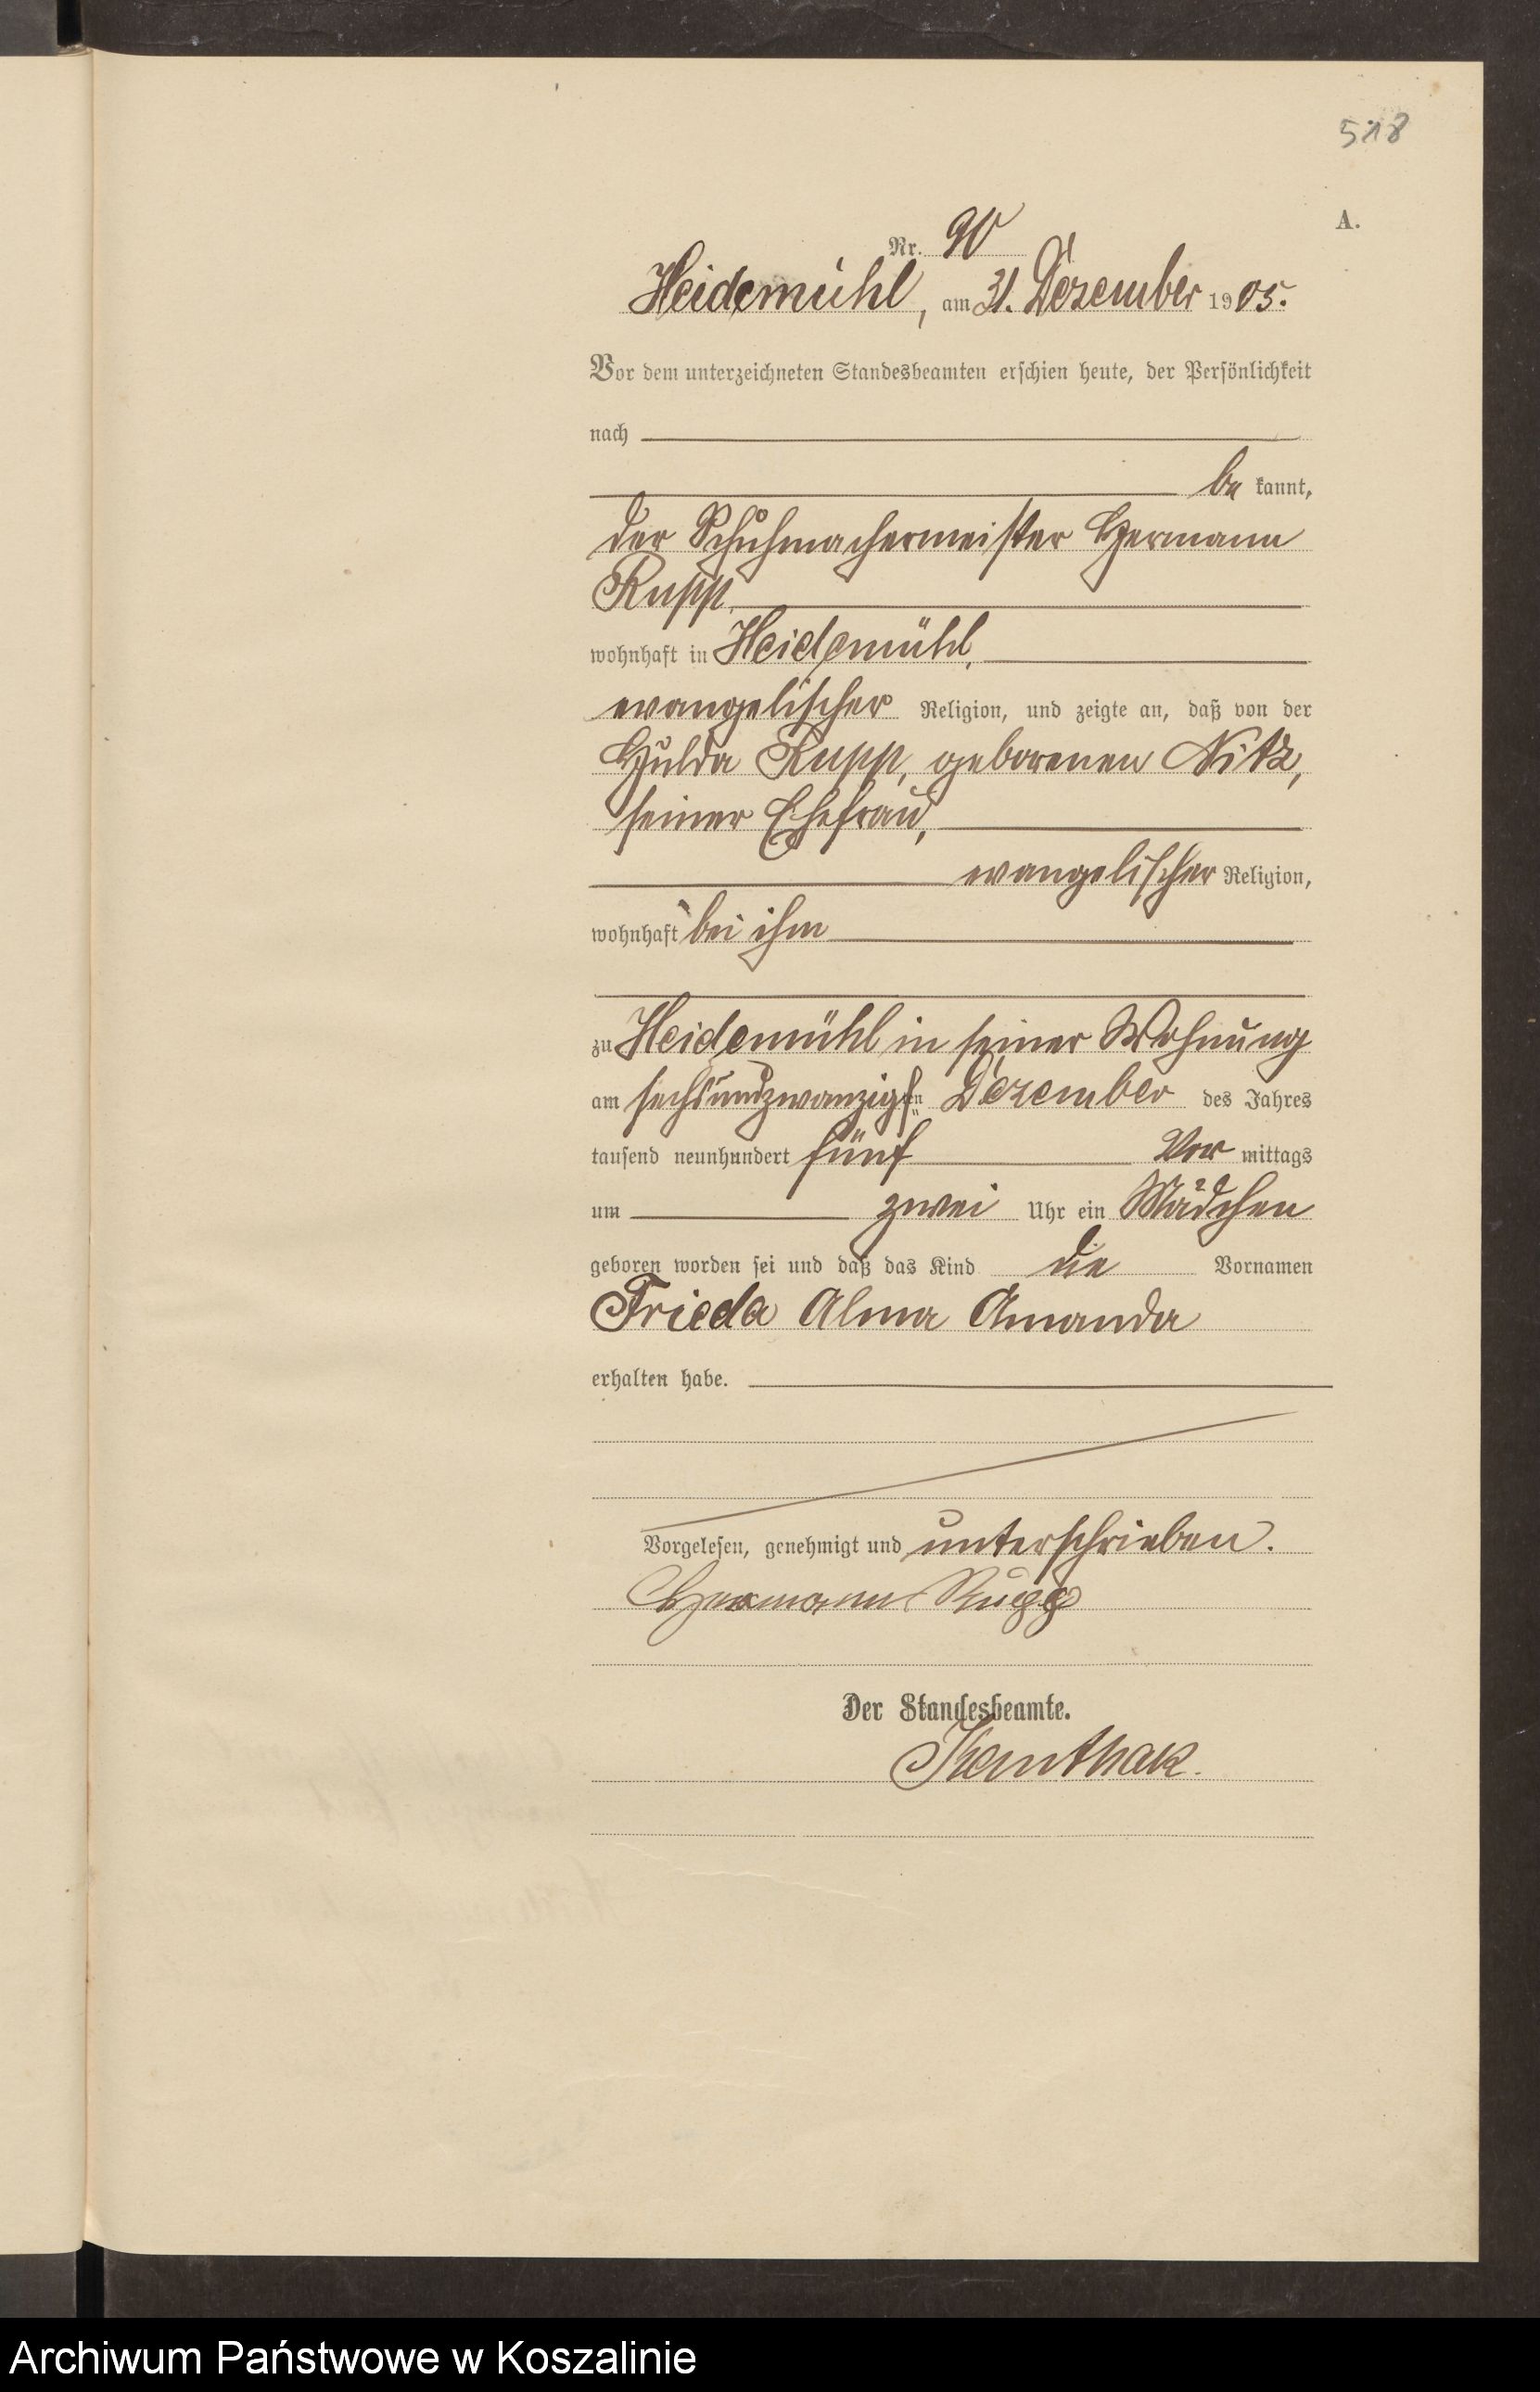 518
A.
Nr. 90
Heidemühl, am 31. Dezember 1905.
Vor dem unterzeichneten Standesbeamten erschien heute, der Persönlichkeit
nach
be kannt,
der Schuhmachermeister Hermann
Rupp,
wohnhaft in Heidemühl,
evangelischer Religion, und zeigte an, daß von der
Hulda Rupp, geborenen Nitz,
seiner Ehefrau,
evangelischer Religion,
wohnhaft bei ihm
zu Heidemühl in seiner Wohnung
am sechsundzwanzigsten Dezember des Jahres
tausend neunhundert fünf Vor mittags
um zwei Uhr ein Mädchen
geboren worden sei und daß das Kind die Vornamen
Frieda Alma Amanda
erhalten habe.
Vorgelesen, genehmigt und unterschrieben.
Hermann Rupp
Der Standesbeamte.
Archiwum Państwowe w Koszalinie